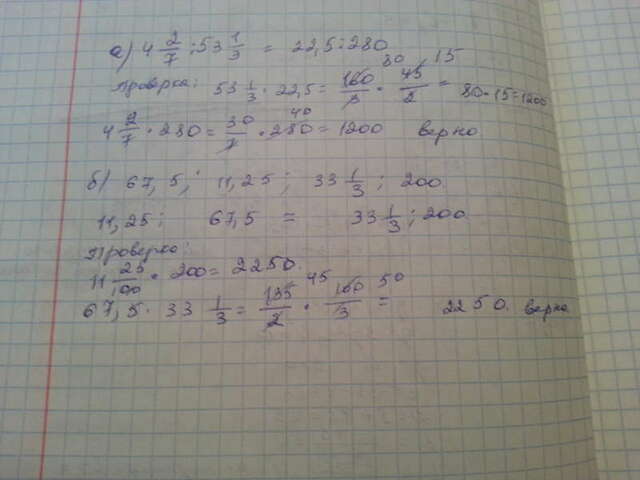 а) 4 2/7 : 53 1/3 = 22,5 : 280
Проверка: 53 1/3 · 22,5 = 160/3 · 45/2 = 80 · 15 = 1200
80 15
4 2/7 · 280 = 30/7 · 280 = 1200 верно
40
б) 67,5; 11,25; 33 1/3; 200.
11,25 : 67,5 = 33 1/3 : 200
Проверка:
11 25/100 · 200 = 2250.
67,5 · 33 1/3 = 135/2 · 100/3 = 2250. верно
45 50